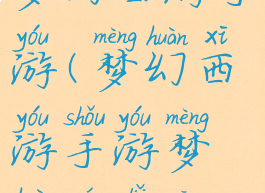 yóu mèng huàn xī
游(梦幻西
yóu shǒu yóu mèng
游手游梦